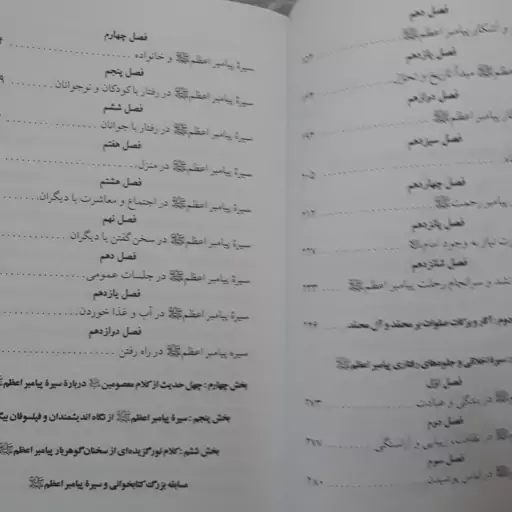 فصل دهم
و آشکار پیامبر اعظم ﷺ
فصل یازدهم
اعظم ﷺ مبدأ تاریخ و تحول
فصل دوازدهم
پیامبر اعظم ﷺ
فصل سیزدهم
فصل چهاردهم
پیامبر رحمت ﷺ ۲۱۲
فصل پانزدهم
نیاز به وجود امام
فصل شانزدهم
و سرانجام رحلت پیامبر اعظم ﷺ ۲۳۳
دوم: آثار و برکات صلوات بر محمد و آل محمد ۲۴۵
سیرۀ اخلاقی و جلوه‌های رفتاری پیامبر اعظم ﷺ
فصل اول
در بندگی و عبادت ۲۷۳
فصل دوم
در نظافت، زیبایی و آراستگی ۲۷۷
فصل سوم
در لباس پوشیدن ۲۸۰
فصل چهارم
سیرۀ پیامبر اعظم ﷺ و خانواده
فصل پنجم
سیرۀ پیامبر اعظم ﷺ در رفتار با کودکان و نوجوانان
فصل ششم
سیرۀ پیامبر اعظم ﷺ در رفتار با جوانان
فصل هفتم
سیرۀ پیامبر اعظم ﷺ در منزل
فصل هشتم
سیرۀ پیامبر اعظم ﷺ در اجتماع و معاشرت با دیگران
فصل نهم
سیرۀ پیامبر اعظم ﷺ در سخن گفتن با دیگران
فصل دهم
سیرۀ پیامبر اعظم ﷺ در جلسات عمومی
فصل یازدهم
سیرۀ پیامبر اعظم ﷺ در آب و غذا خوردن
فصل دوازدهم
سیره پیامبر اعظم ﷺ در راه رفتن
بخش چهارم: چهل حدیث از کلام معصومین دربارۀ سیرۀ پیامبر اعظم ﷺ
بخش پنجم: سیرۀ پیامبر اعظم ﷺ از نگاه اندیشمندان و فیلسوفان
بخش ششم: کلام نور گزیده‌ای از سخنان گوهربار پیامبر اعظم ﷺ
مسابقه بزرگ کتابخوانی و سیرۀ پیامبر اعظم ﷺ